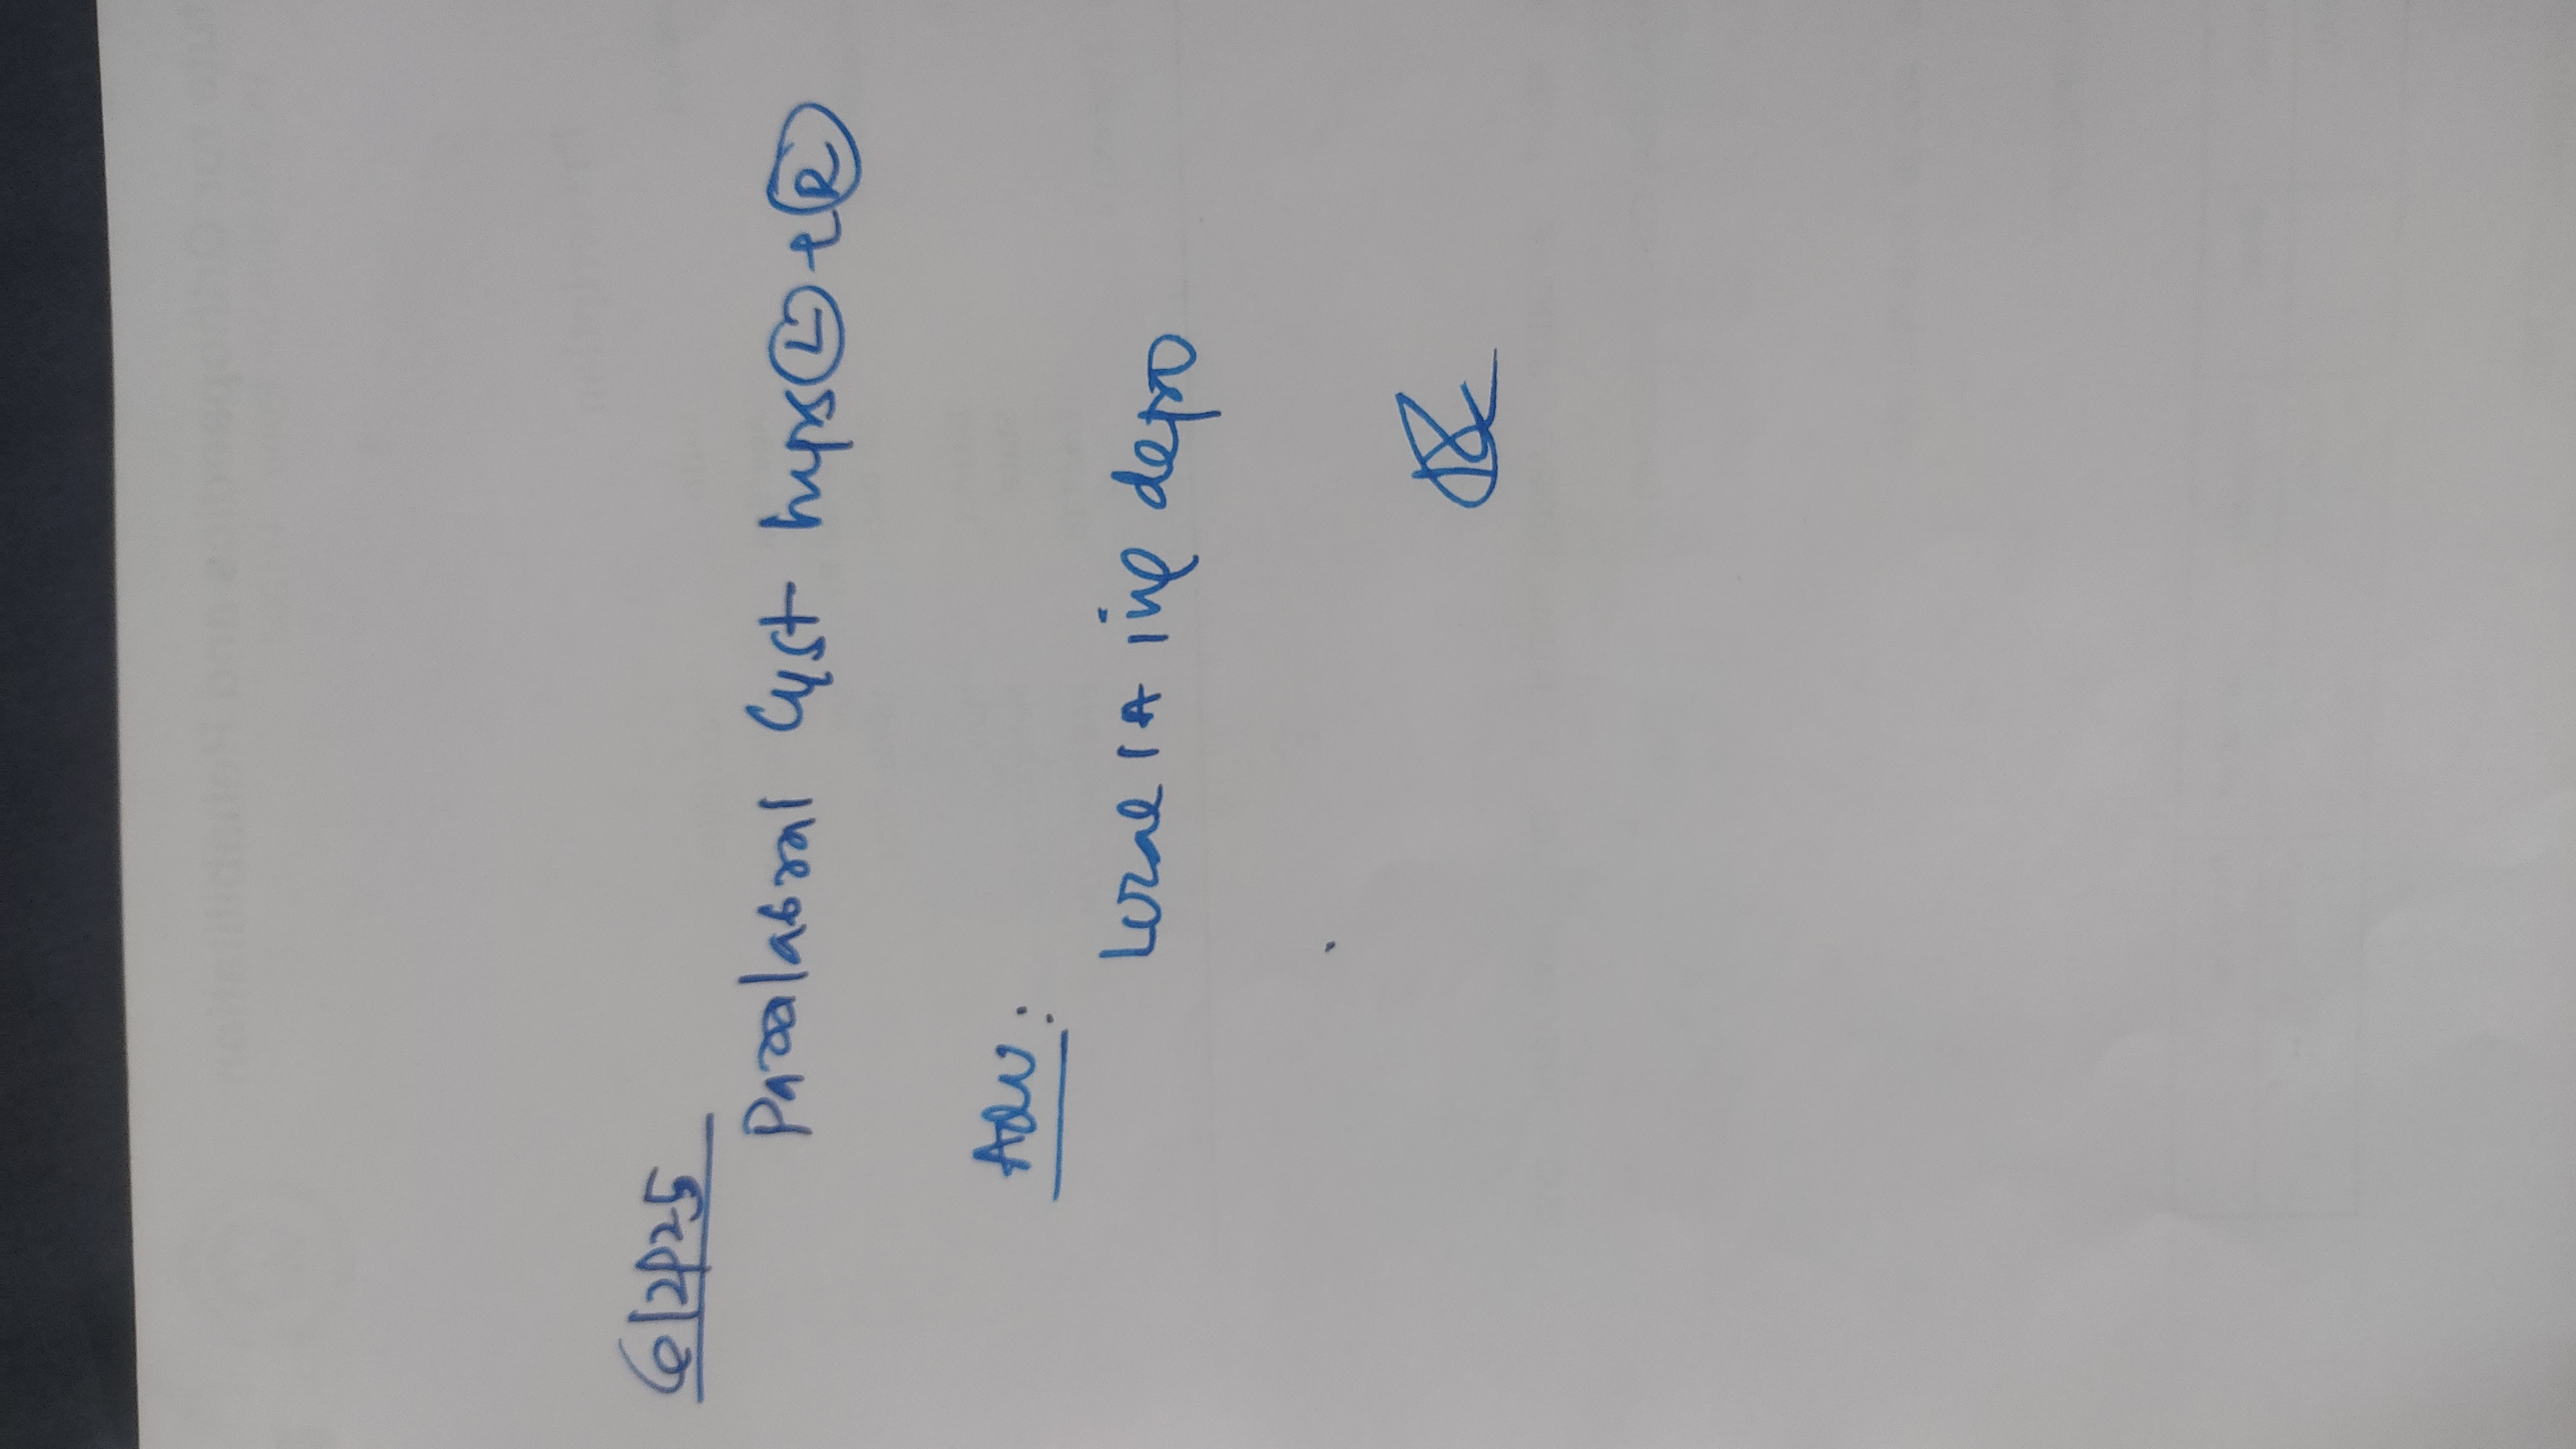 6/2/25
Paraalabral Cyst hips Ⓛ + Ⓡ
Adv:
Local IA inj depo